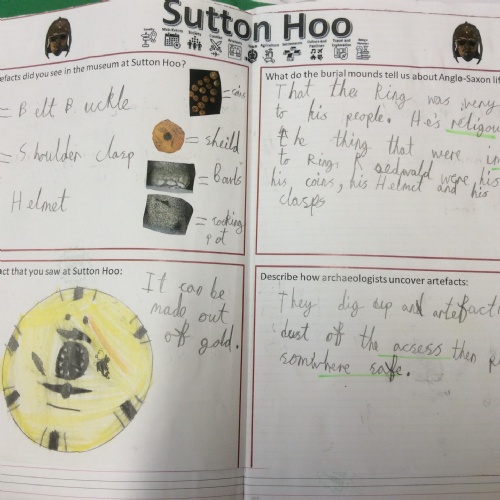 Sutton Hoo
efacts did you see in the museum at Sutton Hoo?
= Belt Buckle
= coins
= Shoulder clasp
= sheild
Helmet
= Bowls
= cooking pot
act that you saw at Sutton Hoo:
It can be
made out
of gold.
What do the burial mounds tell us about Anglo-Saxon lif
That the King was very
to his people. He's religou
the thing that were
to King Raedwald were his
his coins, his Helmet and his
clasps
Describe how archaeologists uncover artefacts:
They dig up and artefact
dust of the acsess then
somwhere safe.